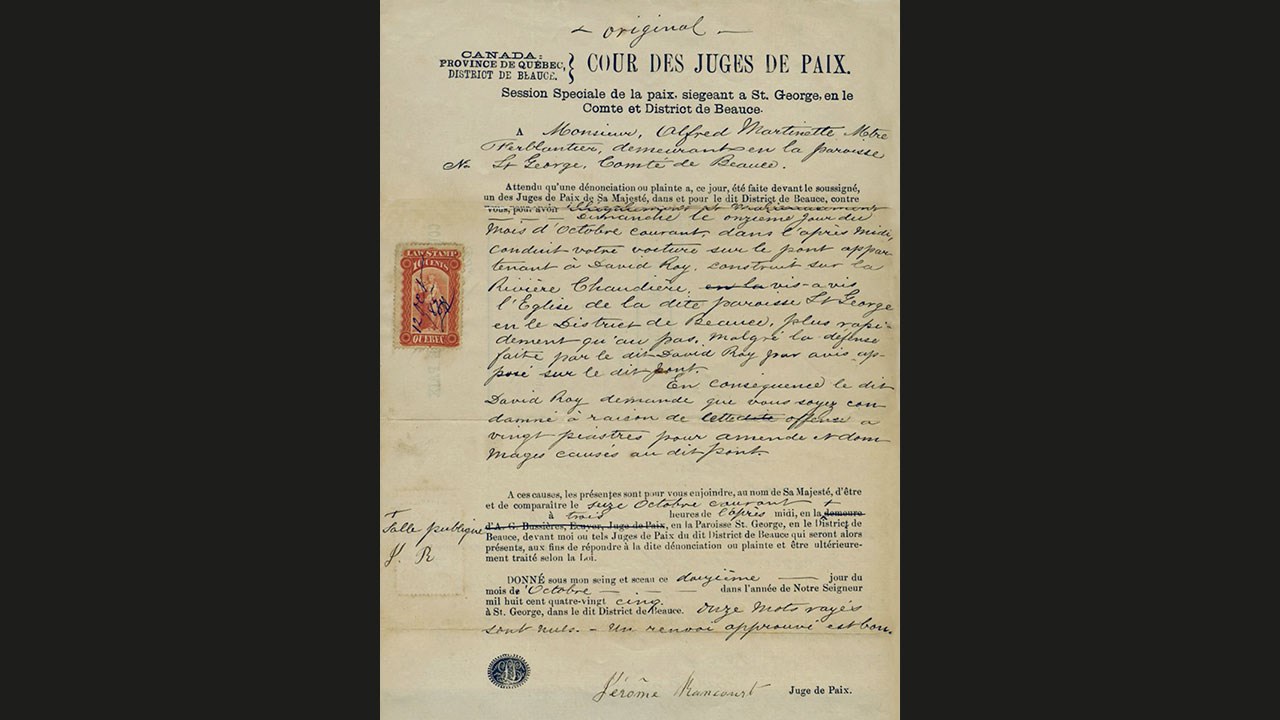 original
CANADA:
PROVINCE DE QUÉBEC,
DISTRICT DE BEAUCE.
COUR DES JUGES DE PAIX.
Session Speciale de la paix, siegeant a St. George, en le
Comte et District de Beauce.
A Monsieur, Alfred Martinette Mtre
Ferblantier, demeurant en la paroisse
No St George, Comté de Beauce.
Attendu qu'une dénonciation ou plainte a, ce jour, été faite devant le soussigné,
un des Juges de Paix de Sa Majesté, dans et pour le dit District de Beauce, contre
vous, pour avoir
Dimanche le onzième jour du
Mois d'Octobre courant, dans l'après midi,
conduit votre voiture sur le pont appar-
tenant à David Roy, construit sur la
Rivière Chaudière, en la vis-a-vis
l'Eglise de la dite paroisse St George
en le District de Beauce, plus rapi-
dement qu'au pas, malgré la défense
faite par le dit David Roy par avis ap-
posé sur le dit pont.
En conséquence le dit
David Roy demande que vous soyez con
damné à raison de cette dite offense a
vingt piastres pour amende et dom
mages causés au dit pont.
LAW STAMP
10 CENTS
QUEBEC
A ces causes, les présentes sont pour vous enjoindre, au nom de Sa Majesté, d'être
et de comparaître le seize Octobre courant
à trois heures de l'après midi, en la demeure
d'A. G. Bussières, Ecuyer, Juge de Paix, en la Paroisse St. George, en le District de
Beauce, devant moi ou tels Juges de Paix du dit District de Beauce qui seront alors
présents, aux fins de répondre à la dite dénonciation ou plainte et être ultérieure-
ment traité selon la Loi.
+ Salle publique
J. R
DONNÉ sous mon seing et sceau ce douzième jour du
mois de Octobre dans l'année de Notre Seigneur
mil huit cent quatre-vingt cinq
à St. George, dans le dit District de Beauce. Onze mots rayés
sont nuls. - Un renvoi approuvé est bon.
Jérôme Rancourt Juge de Paix.